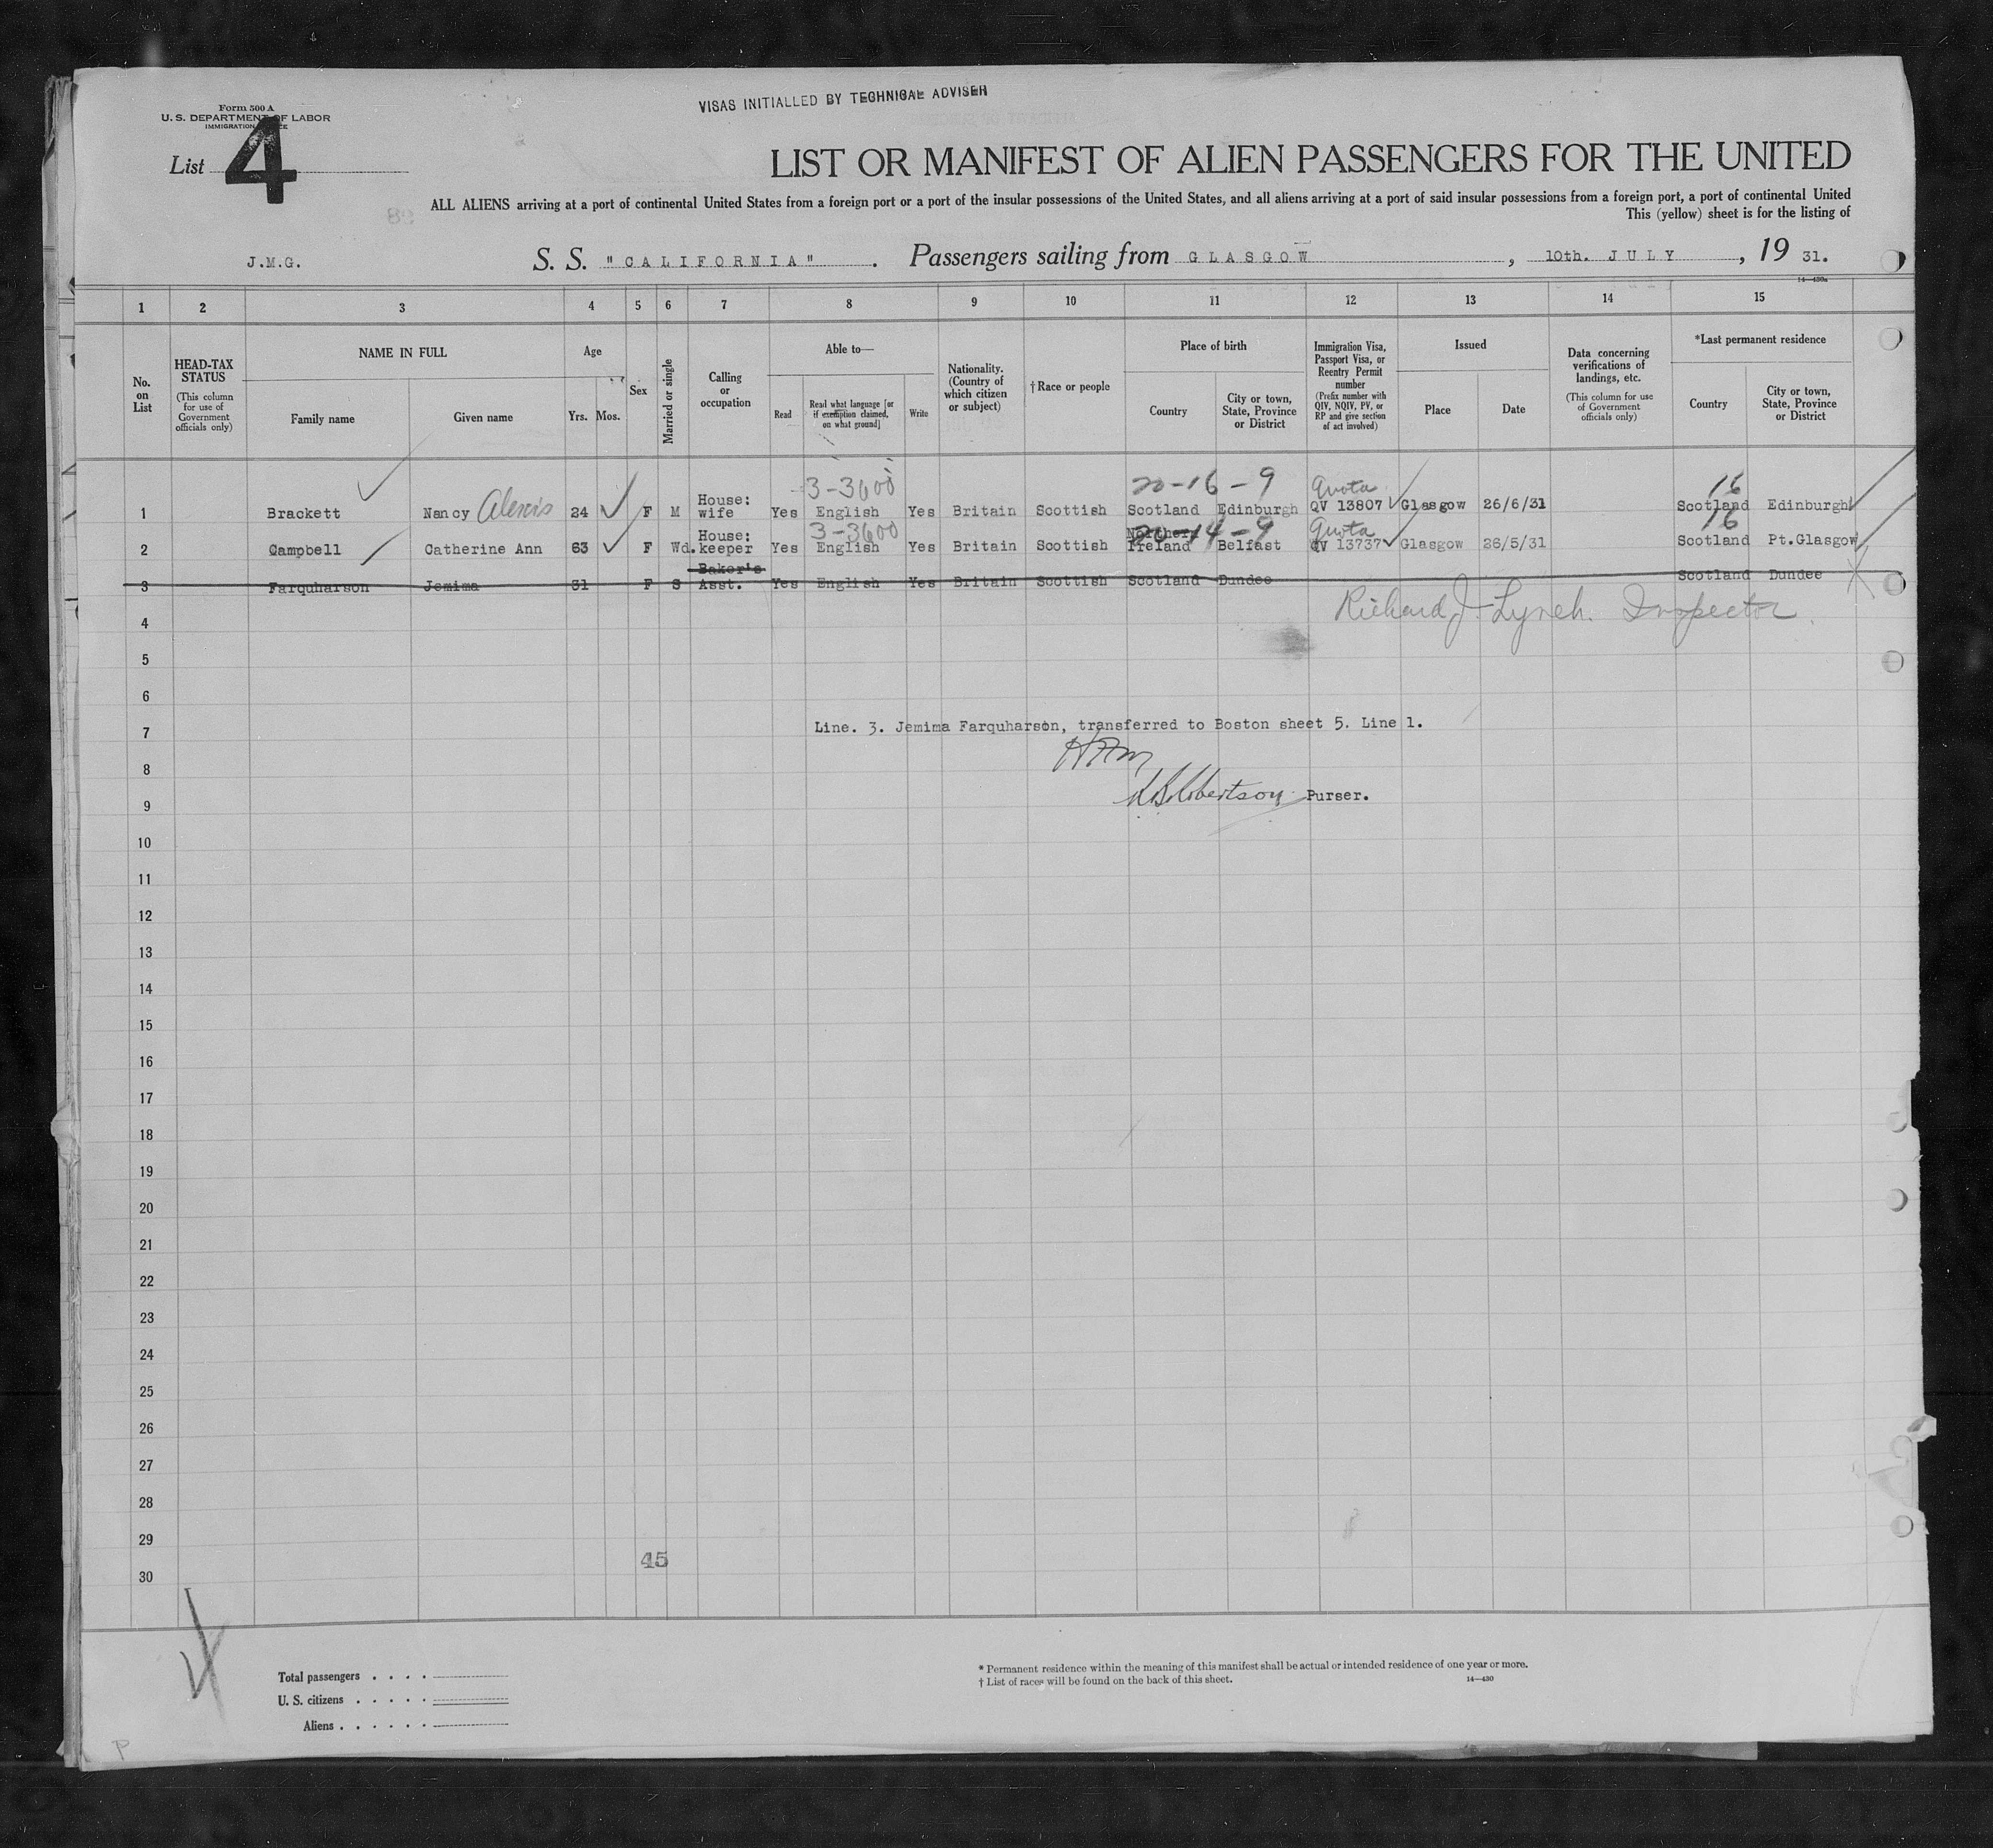 Form 500 A
U. S. DEPARTMENT OF LABOR
IMMIGRATION
VISAS INITIALLED BY TECHNICAL ADVISER
List 4
LIST OR MANIFEST OF ALIEN PASSENGERS FOR THE UNITED
ALL ALIENS arriving at a port of continental United States from a foreign port or a port of the insular possessions of the United States, and all aliens arriving at a port of said insular possessions from a foreign port, a port of continental United
This (yellow) sheet is for the listing of
J.M.G. S. S. "CALIFORNIA". Passengers sailing from GLASGOW, 10th. JULY, 19 31.
14—430a
1 2 3 4 5 6 7 8 9 10 11 12 13 14 15
No. on List
HEAD-TAX STATUS (This column for use of Government officials only)
NAME IN FULL
Family name Given name
Age
Yrs. Mos.
Sex
Married or single
Calling or occupation
Able to—
Read Read what language [or if exemption claimed, on what ground] Write
Nationality. (Country of which citizen or subject)
† Race or people
Place of birth
Country City or town, State, Province or District
Immigration Visa, Passport Visa, or Reentry Permit number (Prefix number with QIV, NQIV, PV, or RP and give section of act involved)
Issued
Place Date
Data concerning verifications of landings, etc. (This column for use of Government officials only)
*Last permanent residence
Country City or town, State, Province or District
3-3600 20-16-9 Quota 16
1 Brackett Nancy Alexis 24 F M House: wife Yes English Yes Britain Scottish Scotland Edinburgh QV 13807 Glasgow 26/6/31 Scotland Edinburgh
3-3600 20-14-9 Quota 16
2 Campbell Catherine Ann 63 F Wd. House: keeper Yes English Yes Britain Scottish Northern Ireland Belfast QV 13737 Glasgow 26/5/31 Scotland Pt.Glasgow
3 Farquharson Jemima 31 F S Baker's Asst. Yes English Yes Britain Scottish Scotland Dundee Scotland Dundee
4 Richard J. Lynch. Inspector.
5
6
7 Line. 3. Jemima Farquharson, transferred to Boston sheet 5. Line 1.
8
9 Robertson Purser.
10
11
12
13
14
15
16
17
18
19
20
21
22
23
24
25
26
27
28
29
45
30
Total passengers . . . .
U. S. citizens . . . . .
Aliens . . . . . .
* Permanent residence within the meaning of this manifest shall be actual or intended residence of one year or more.
† List of races will be found on the back of this sheet. 14—430
P